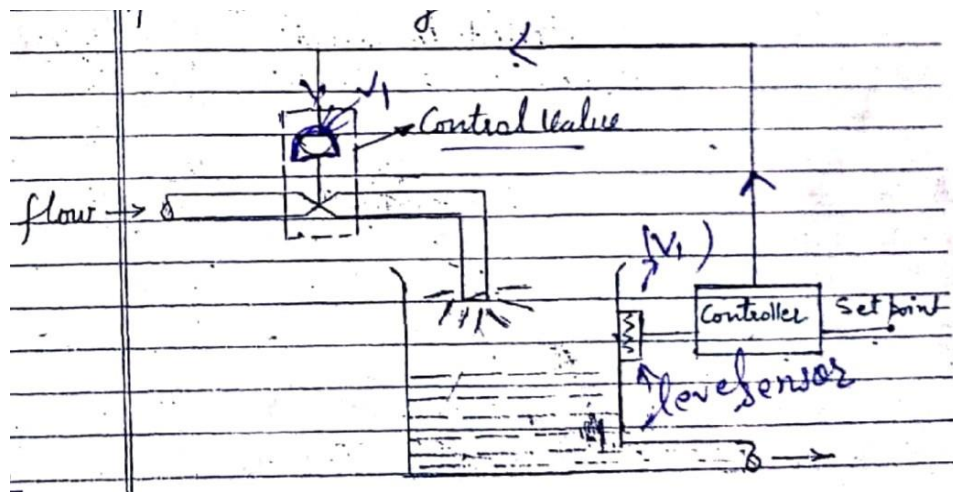 V₁
Control Value
flow
(V₁)
Controller
Set point
level sensor